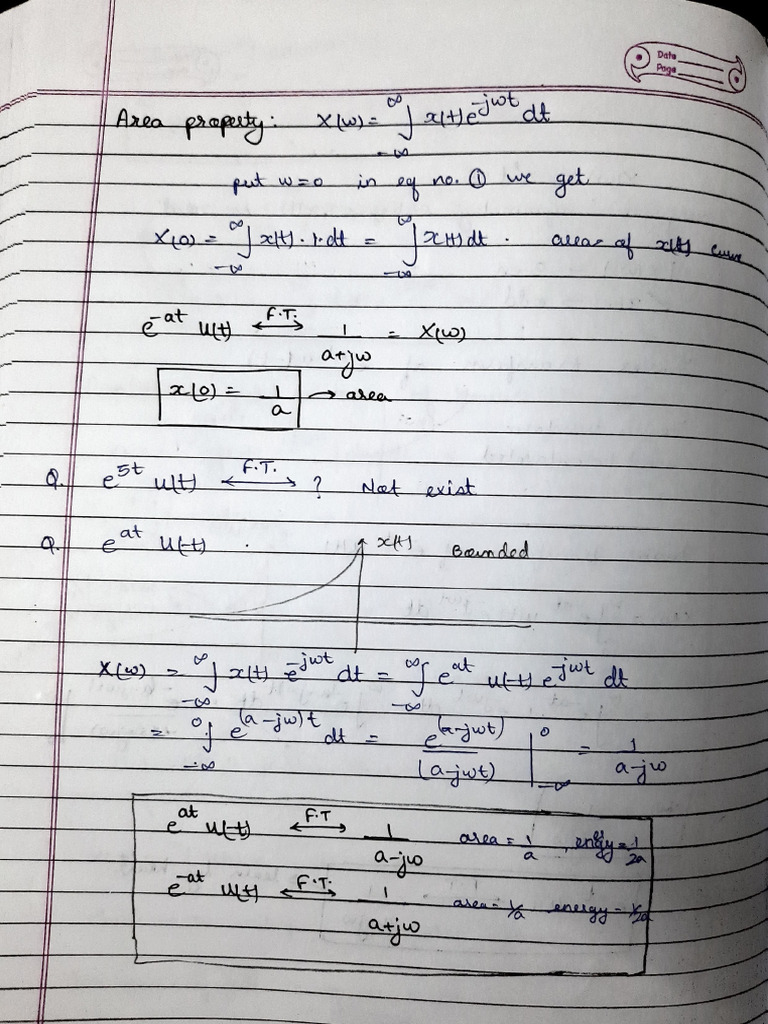 Date
Page
Area property: X(w) = ∞∫-∞ x(t) e^-jwt dt
put w=0 in eq no. ① we get
X(0) = ∞∫-∞ x(t) . 1. dt = ∞∫-∞ x(t) dt . area of x(t) curve
e^-at u(t) <-F.T.-> 1/(a+jw) = X(w)
x(0) = 1/a → area
Q. e^5t u(t) <-F.T.-> ? Not exist
Q. e^at u(-t) . x(t) Bounded
X(w) = ∞∫-∞ x(t) e^-jwt dt = ∞∫-∞ e^at u(-t) e^-jwt dt
= 0∫-∞ e^(a-jw)t dt = e^(a-jwt)/(a-jwt) |0 -∞ = 1/(a-jw)
e^at u(-t) <-F.T-> 1/(a-jw) area = 1/a , engy = 1/2a
e^-at u(t) <-F.T.-> 1/(a+jw) area = 1/a energy = 1/2a